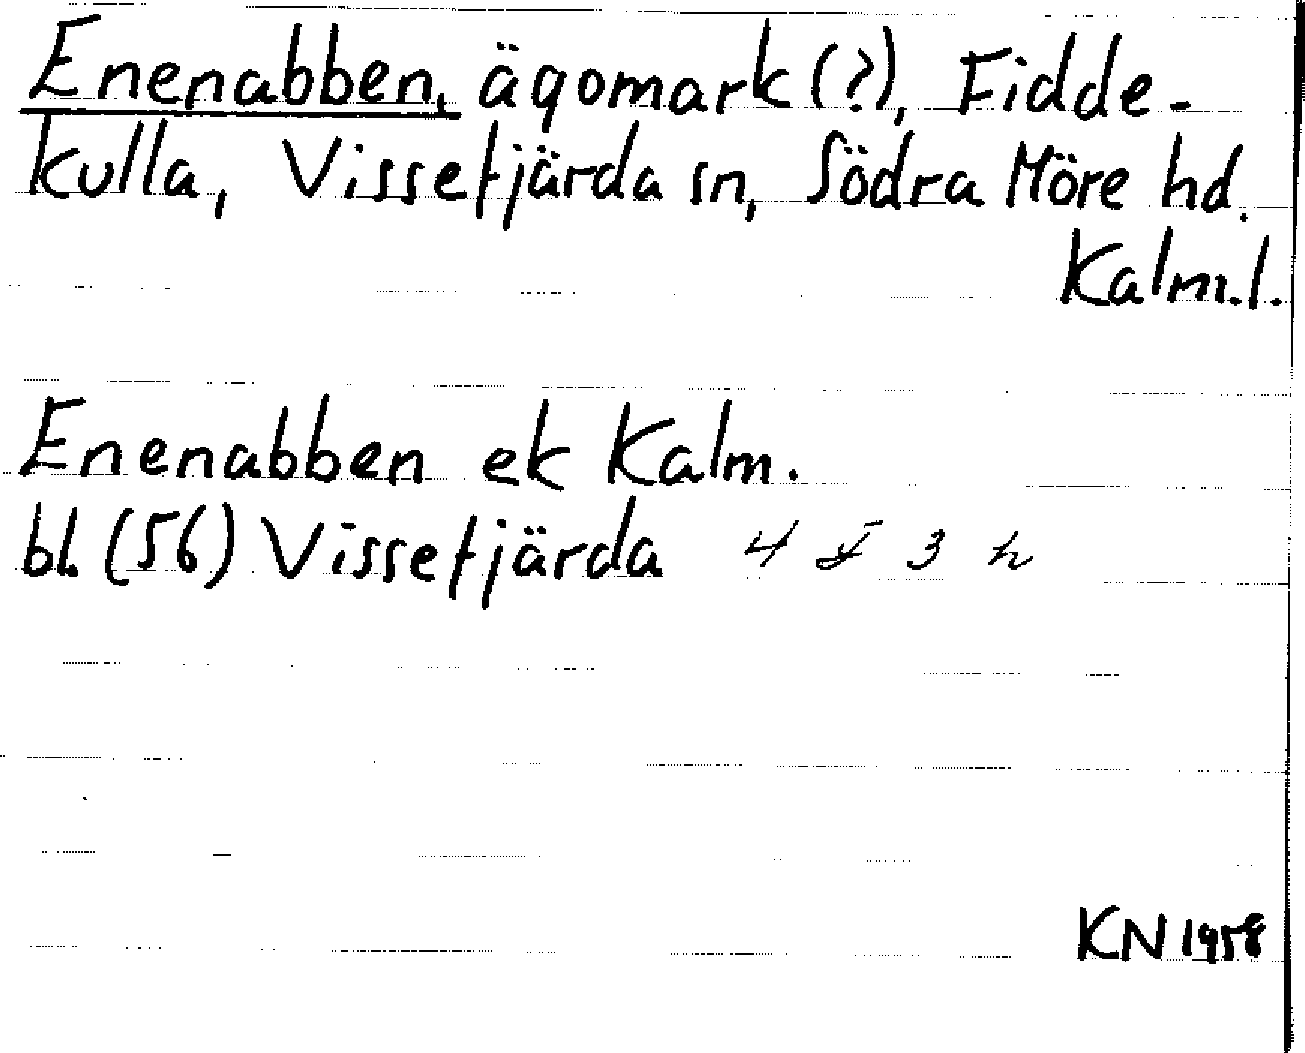 Enenabben, ägomark (?), Fidde-
kulla, Vissefjärda sn, Södra Möre hd.
Kalm.l.
Enenabben ek Kalm.
bl. (56) Vissefjärda 4 3 h
KN 1958